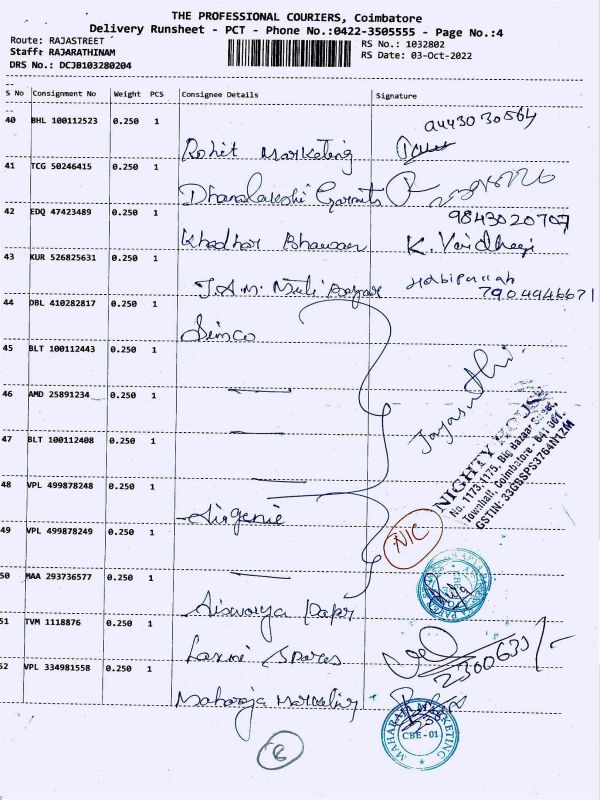 THE PROFESSIONAL COURIERS, Coimbatore
Delivery Runsheet - PCT - Phone No.:0422-3505555 - Page No.:4
Route: RAJASTREET
Staff: RAJARATHINAM
DRS No.: DCJB103280204
RS No.: 1032802
RS Date: 03-Oct-2022
S No Consignment No Weight PCS Consignee Details Signature
40 BHL 100112523 0.250 1
Rohit Marketing
41 TCG 50246415 0.250 1
Dhanalakshi Garmnts
42 EDQ 47423489 0.250 1
9843020707
Khadhar Bhavan K. Vaidhegi
43 KUR 526825631 0.250 1
J.A.M. Multi Bazar
7904946671
44 DBL 410282817 0.250 1
Simco
45 BLT 100112443 0.250 1
46 AMD 25891234 0.250 1
Jayasuthi
47 BLT 100112408 0.250 1
NIGHTY HOUSE
No. 1173-1175, Big Bazaar Street,
Townhall, Coimbatore - 641 001.
GSTIN: 33GBSPS3764N1ZM
48 VPL 499878248 0.250 1
Airgenie
49 VPL 499878249 0.250 1
NIC
50 MAA 293736577 0.250 1
Aiswarya Papr
51 TVM 1118876 0.250 1
Laxmi Spares
2300633/-
52 VPL 334981558 0.250 1
Maharaja Marketing
MAHARAJA MARKETING
CBE - 01
6